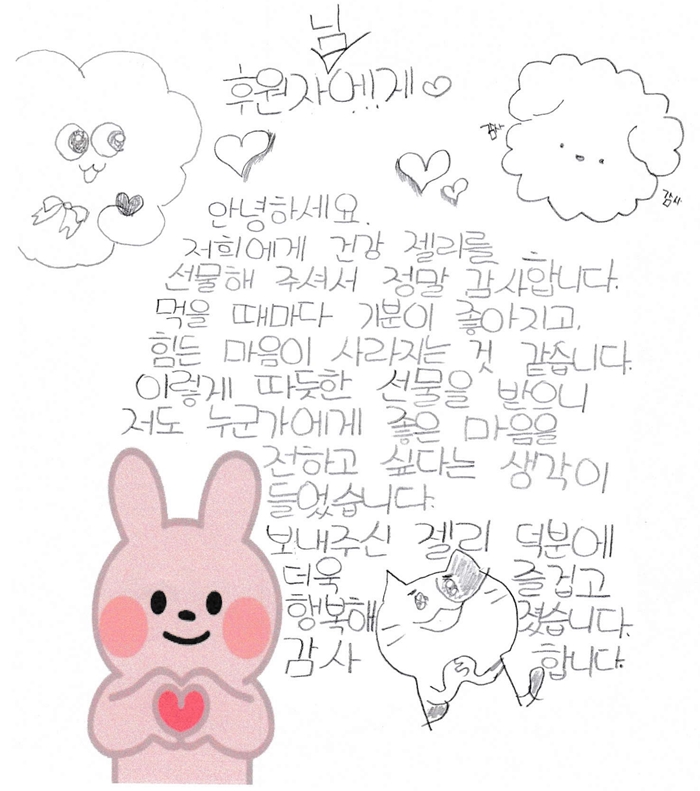 후원자님에게
감사
감사
안녕하세요.
저희에게 건강 젤리를
선물해 주셔서 정말 감사합니다.
먹을 때마다 기분이 좋아지고,
힘든 마음이 사라지는 것 같습니다.
이렇게 따듯한 선물을 받으니
저도 누군가에게 좋은 마음을
전하고 싶다는 생각이
들었습니다.
보내주신 젤리 덕분에
더욱 즐겁고
행복해졌습니다.
감사합니다.